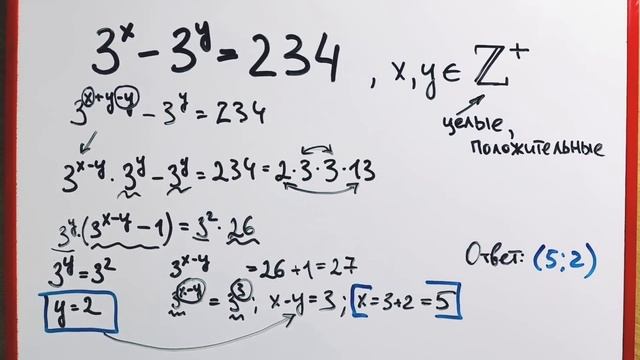 3ˣ − 3ʸ = 234 , x, y ∈ ℤ⁺
целые,
положительные
3ˣ⁺ʸ⁻ʸ − 3ʸ = 234
3ˣ⁻ʸ · 3ʸ − 3ʸ = 234 = 2 · 3 · 3 · 13
3ʸ · (3ˣ⁻ʸ − 1) = 3² · 26
3ʸ = 3² 3ˣ⁻ʸ = 26 + 1 = 27
y = 2 3ˣ⁻ʸ = 3³ ; x − y = 3 ; x = 3 + 2 = 5
Ответ: (5; 2)